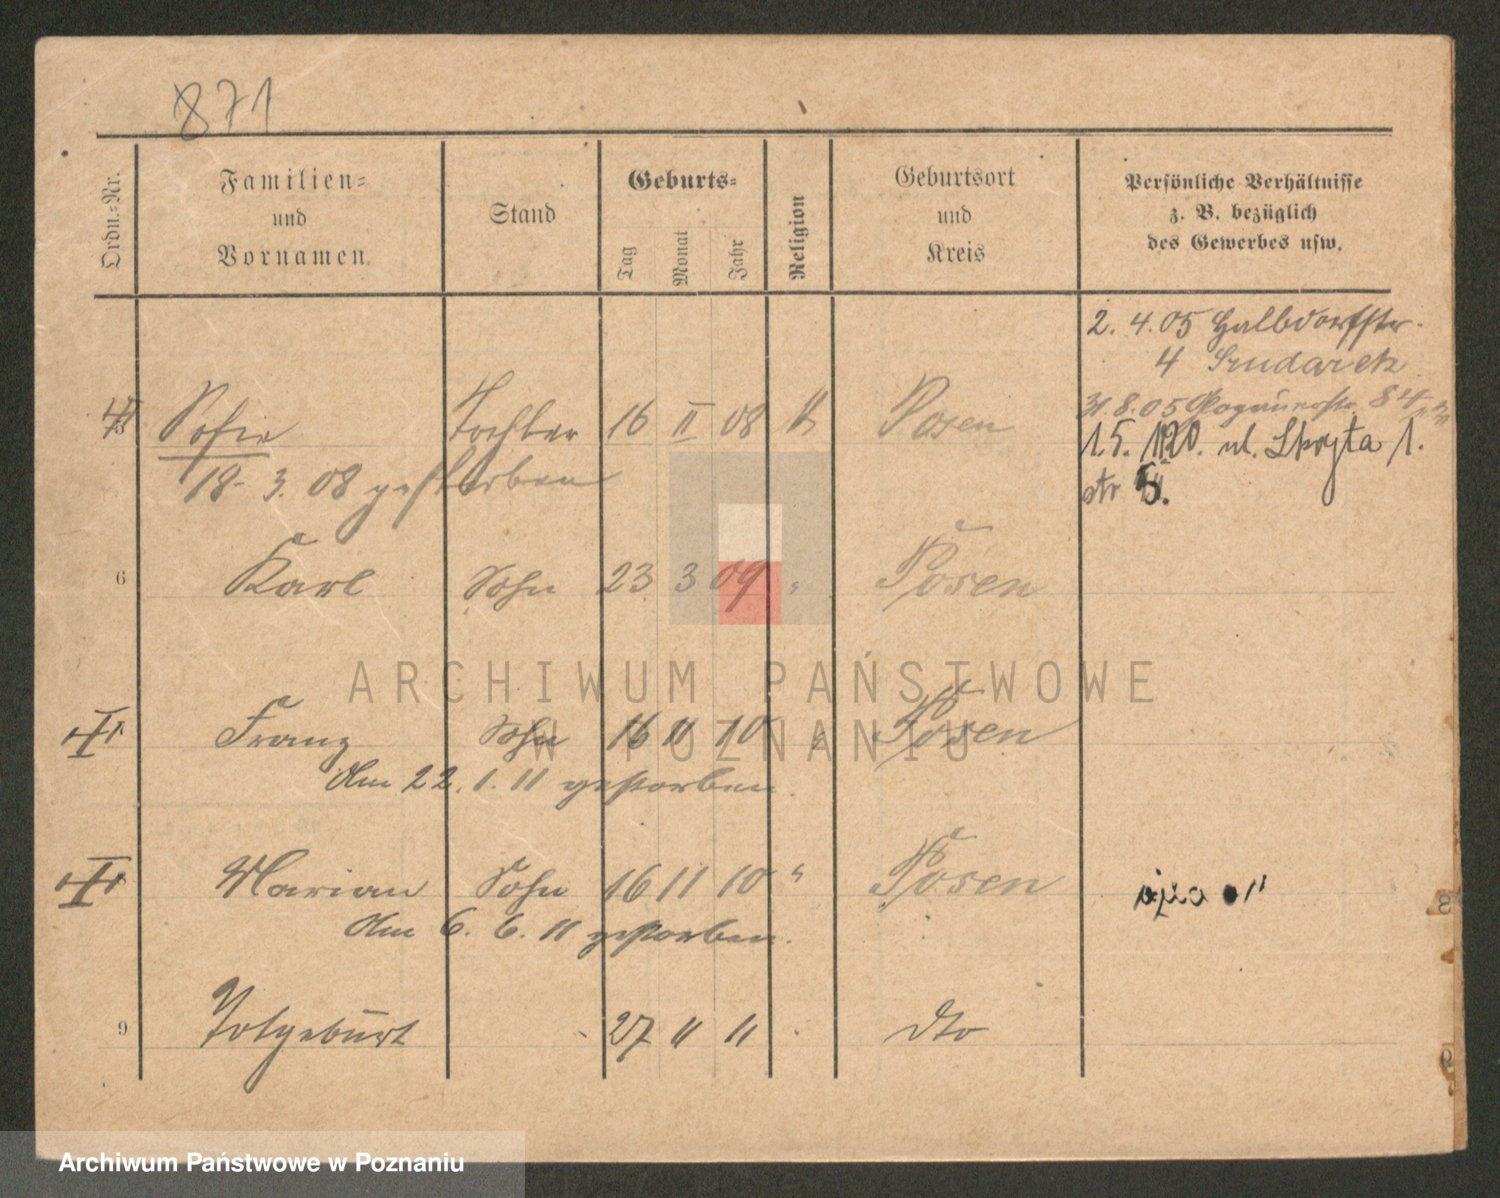 871
Ordn.-Nr.
Familien-
und
Vornamen
Stand
Geburts-
Tag
Monat
Jahr
Religion
Geburtsort
und
Kreis
Persönliche Verhältnisse
z. B. bezüglich
des Gewerbes usw.
2. 4. 05 Halbdorfstr.
4
31. 8. 05
15. ul. Skryta 1.
str
5 Sofie Tochter 16 II 08 K Posen
18. 3. 08 gestorben
6 Karl Sohn 23 3 09 " Posen
Franz Sohn 16 11 10 " Posen
Am 22. 1. 11 gestorben.
Marian Sohn 16 11 10 " Posen
Am 6. 6. 11 gestorben.
9 Totgeburt 27 11 11 dto
ARCHIWUM PAŃSTWOWE
W POZNANIU
Archiwum Państwowe w Poznaniu